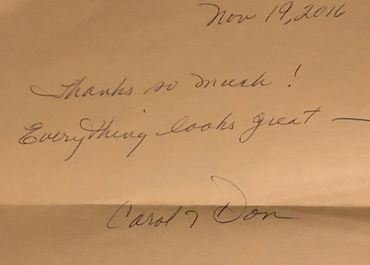 Nov 19, 2016
Thanks so much!
Everything looks great —
Carol & Don